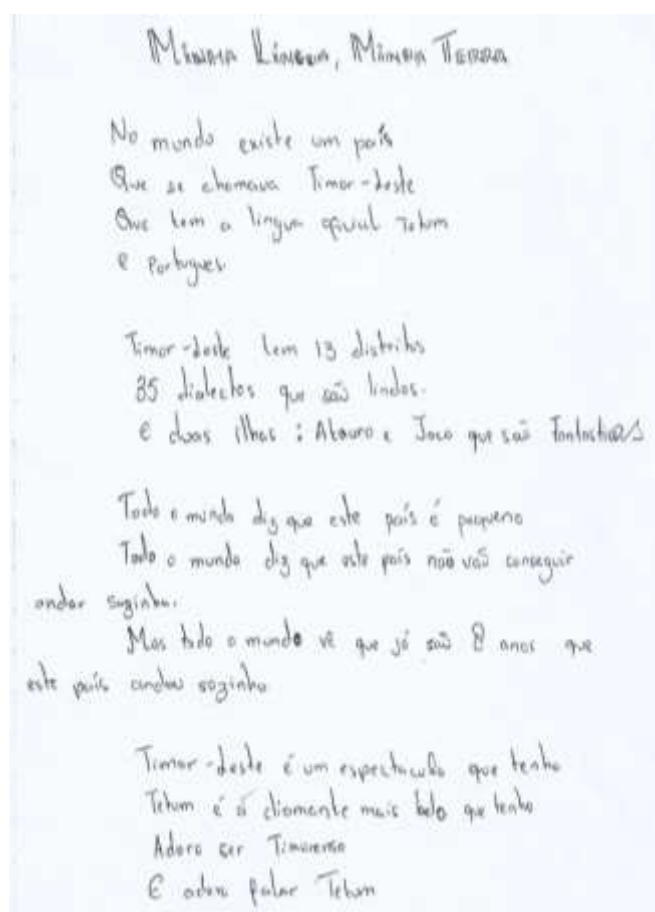 MINHA LÍNGUA, MINHA TERRA
No mundo existe um país
Que se chamava Timor-Leste
Que tem a lingua oficial Tetum
e Portugues
Timor-Leste tem 13 distritos
35 dialectos que são lindos.
E duas ilhas : Atauro e Jaco que são Fantasticas
Todo o mundo diz que este país é pequeno
Todo o mundo diz que este país não vão conseguir
andar sozinho.
Mas todo o mundo vê que já são 8 anos que
este país andou sozinho
Timor-Leste é um espectaculo que tenho
Tetum é o diamante mais belo que tenho
Adoro ser Timorense
E adoro falar Tetum